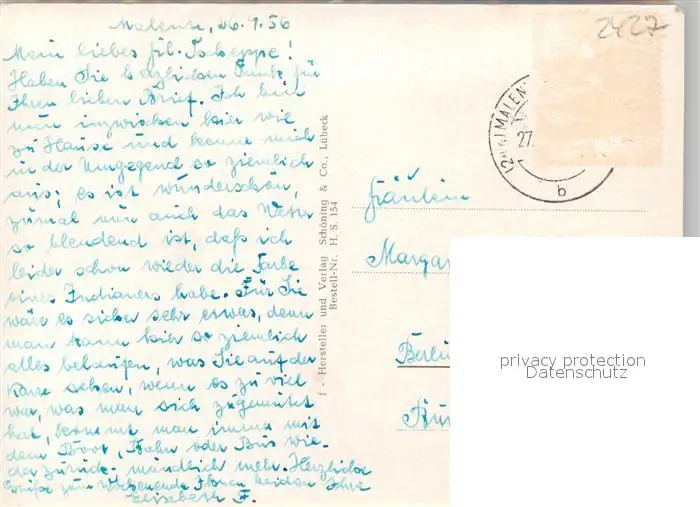 Malente, 26.9.56
Mein liebes Frl. Tscheppe!
Haben Sie herzlichen Dank für
Ihren lieben Brief. Ich bin
nun inzwischen hier wie
zu Hause und kenne mich
in der Umgegend so ziemlich
aus; es ist wunderschön,
zumal nun auch das Wetter
so blendend ist, daß ich
leider schon wieder die Farbe
eines Indianers habe. Für Sie
wäre es sicher sehr etwas, denn
man kann hier so ziemlich
alles belaufen, was Sie auf der
Karte sehen, wenn es zu viel
war, was man sich zugemutet
hat, kommt man immer mit
dem Boot, Bahn oder Bus wie-
der zurück. mündlich mehr. Herzliche
Grüße zum Wochenende Ihnen beiden Ihre
Elisabeth F.
f - Hersteller und Verlag Schöning & Co., Lübeck
Bestell-Nr. H. S. 154
2427
MALEN
27.
b
Fräulein
Margar
Berlin
privacy protection
Datenschutz